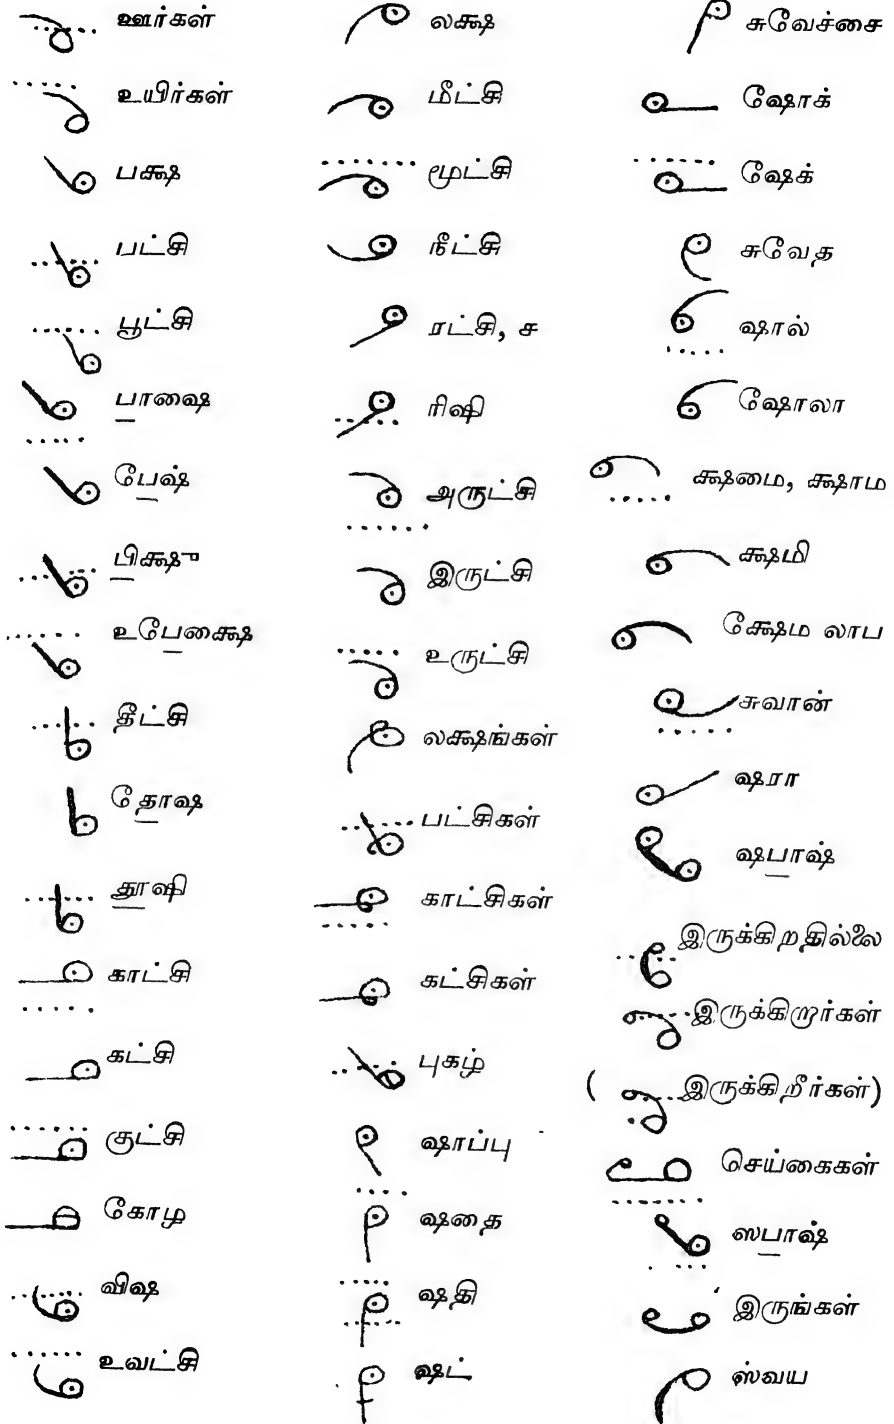 ஊர்கள்
உயிர்கள்
பக்ஷ
பட்சி
பூட்சி
பாஷை
பேஷ்
பிக்ஷு
உபேக்ஷை
தீட்சி
தோஷ
தூஷி
காட்சி
கட்சி
குட்சி
கோழ
விஷ
உவட்சி
லக்ஷ
மீட்சி
மூட்சி
நீட்சி
ரட்சி, ச
ரிஷி
அருட்சி
இருட்சி
உருட்சி
லக்ஷங்கள்
பட்சிகள்
காட்சிகள்
கட்சிகள்
புகழ்
ஷாப்பு
ஷதை
ஷதி
ஷட்
சுவேச்சை
ஷோக்
ஷேக்
சுவேத
ஷால்
ஷோலா
க்ஷமை, க்ஷாம
க்ஷமி
க்ஷேம லாப
சுவான்
ஷரா
ஷபாஷ்
இருக்கிறதில்லை
இருக்கிறார்கள்
(இருக்கிறீர்கள்)
செய்கைகள்
ஸபாஷ்
இருங்கள்
ஸ்வய